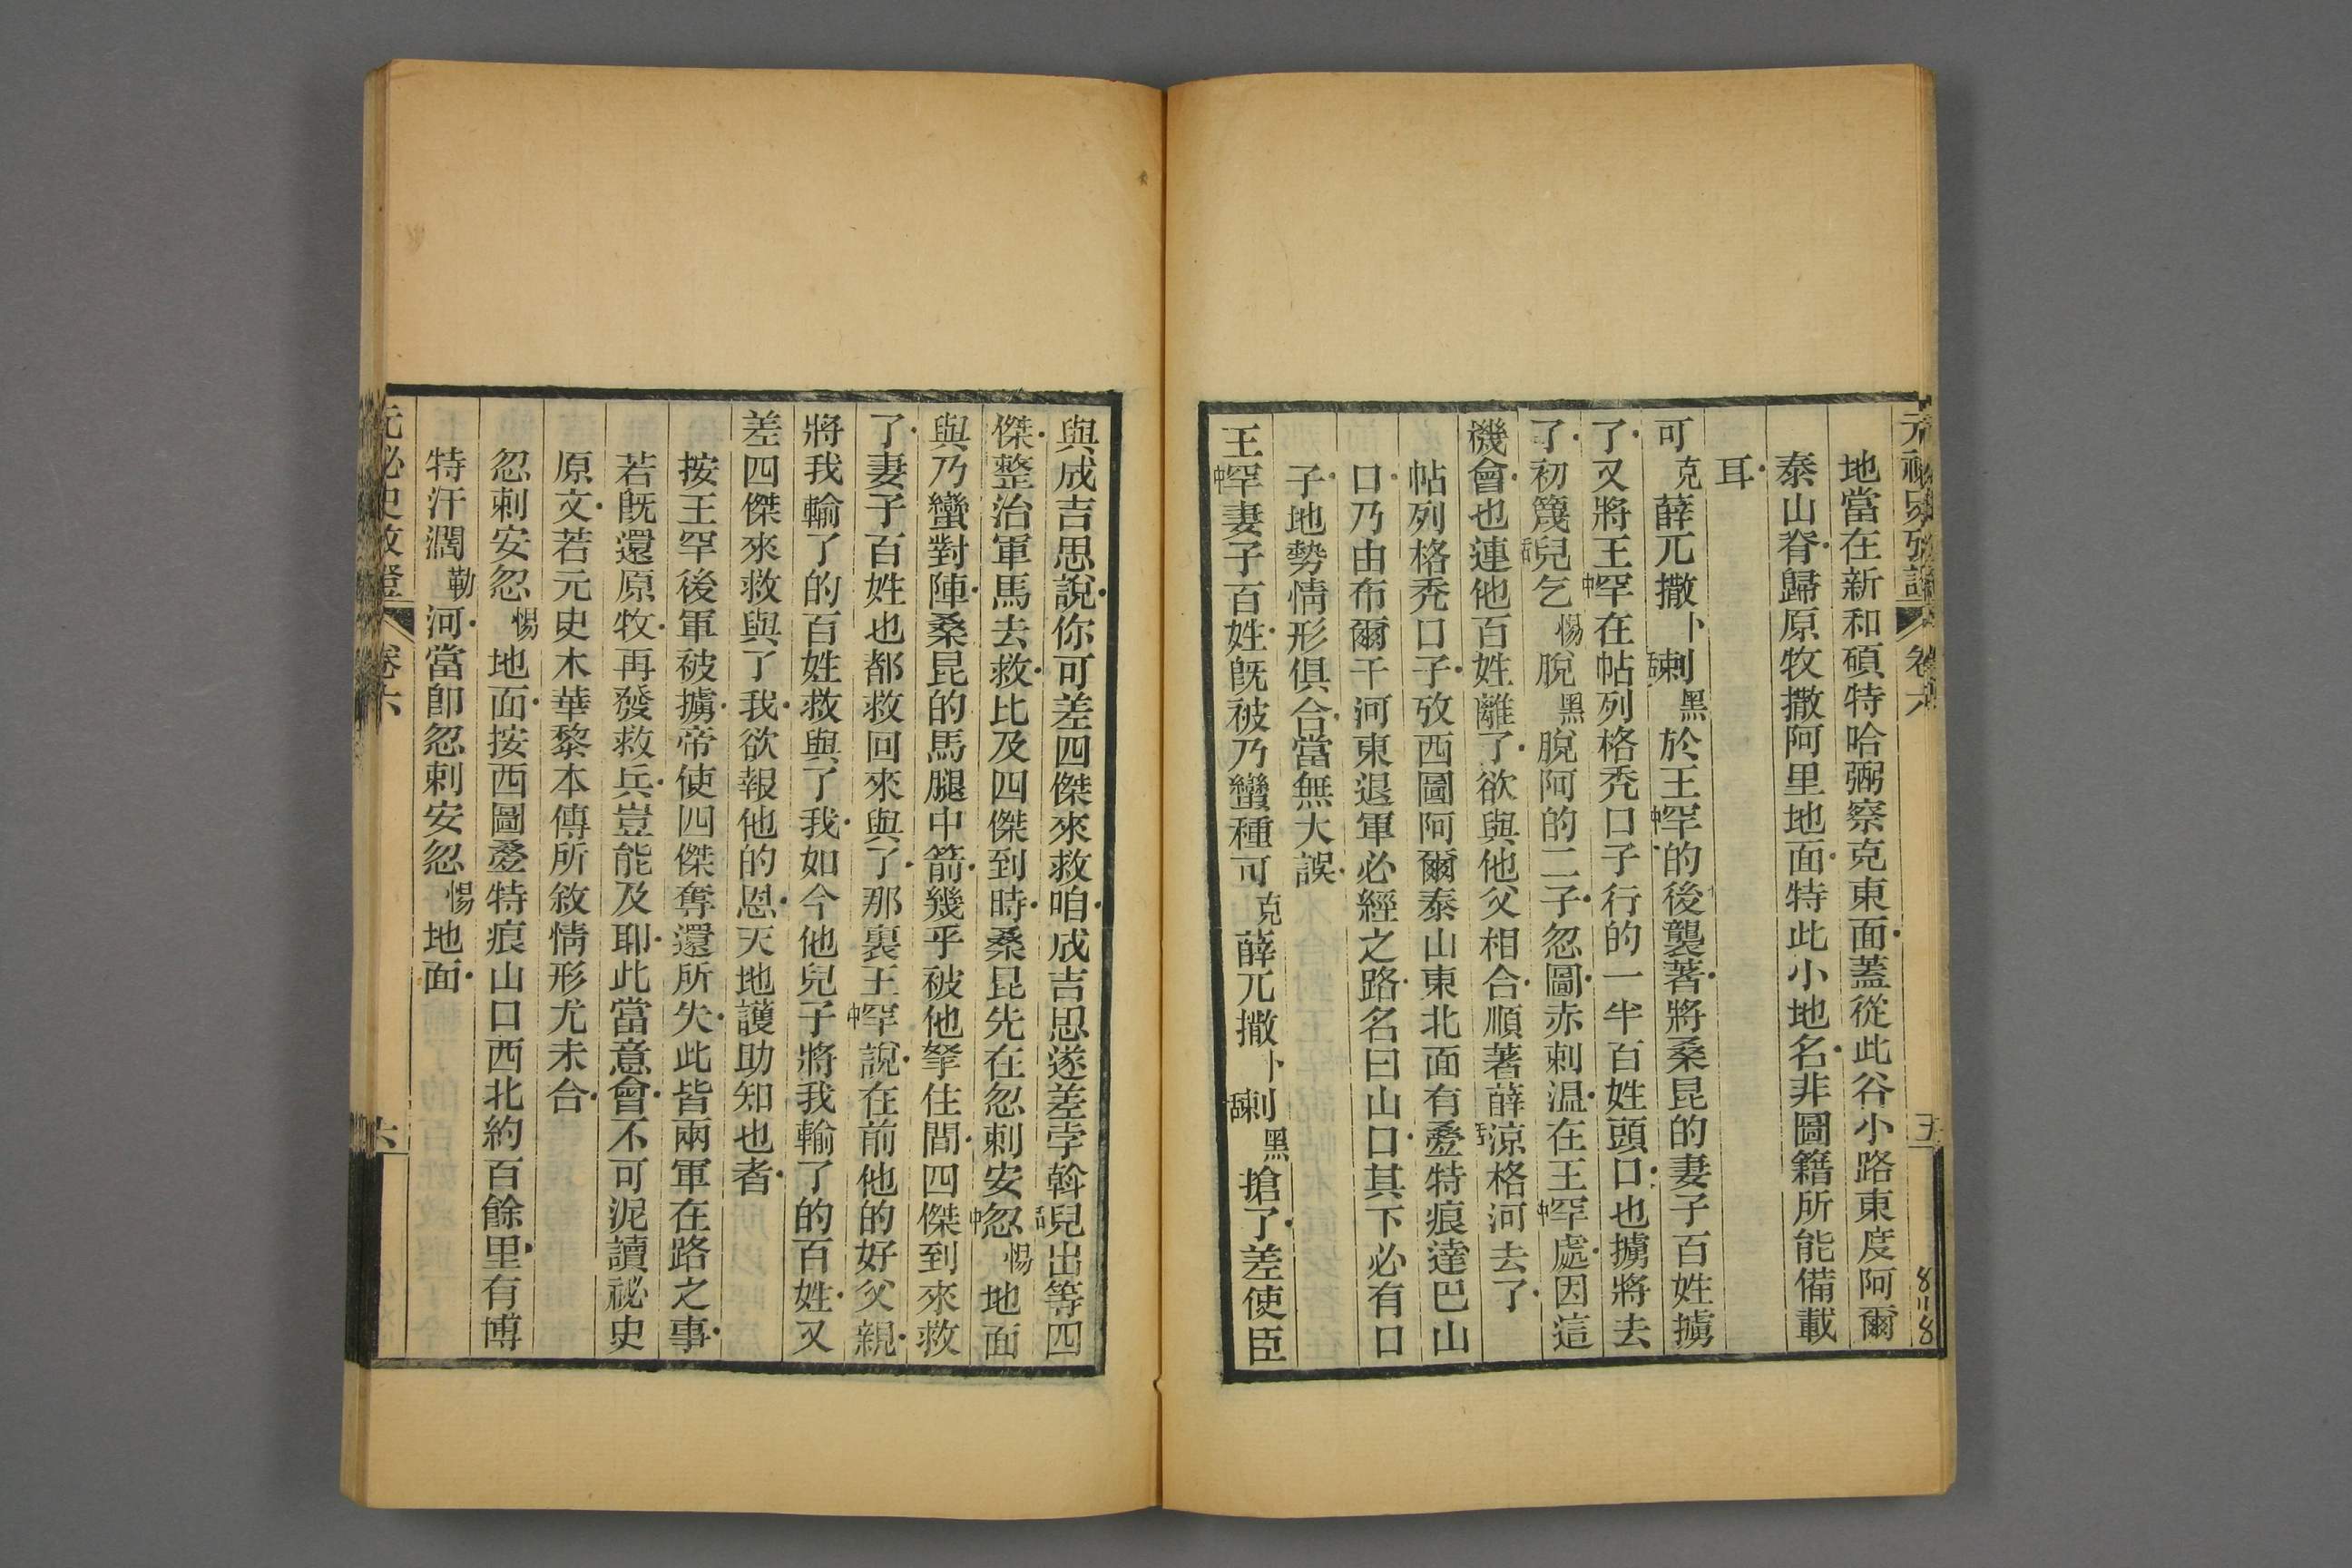 元祕史攷證 卷六 五
地當在新和碩特哈弼察克東面蓋從此谷小路東度阿爾
泰山脊歸原牧撒阿里地面特此小地名非圖籍所能備載
耳
可克薛兀撒卜舌剌黑於王中罕的後襲著將桑昆的妻子百姓擄
了又將王中罕在帖列格禿口子行的一半百姓頭口也擄將去
了初篾舌兒乞惕脫黑脫阿的二子忽圖赤剌溫在王中罕處因這
機會也連他百姓離了欲與他父相合順著薛舌涼格河去了
帖列格禿口子攷西圖阿爾泰山東北面有疊特痕達巴山
口乃由布爾干河東退軍必經之路名曰山口其下必有口
子地勢情形俱合當無大誤
王中罕妻子百姓旣被乃蠻種可克薛兀撒卜舌剌黑搶了差使臣
與成吉思說你可差四傑來救咱成吉思遂差孛斡舌兒出等四
傑整治軍馬去救比及四傑到時桑昆先在忽剌安中忽惕地面
與乃蠻對陣桑昆的馬腿中箭幾乎被他拏住間四傑到來救
了妻子百姓也都救回來與了那裏王中罕說在前他的好父親
將我輸了的百姓救與了我如今他兒子將我輸了的百姓又
差四傑來救與了我欲報他的恩天地護助知也者
按王罕後軍被擄帝使四傑奪還所失此皆兩軍在路之事
若旣還原牧再發救兵豈能及耶此當意會不可泥讀祕史
原文若元史木華黎本傳所敘情形尤未合
忽剌安忽惕地面按西圖疊特痕山口西北約百餘里有博
特汗濶勒河當卽忽剌安忽惕地面
元祕史攷證 卷六 六